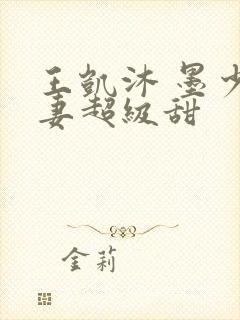 王凱沐 墨少
妻超級甜
金莉